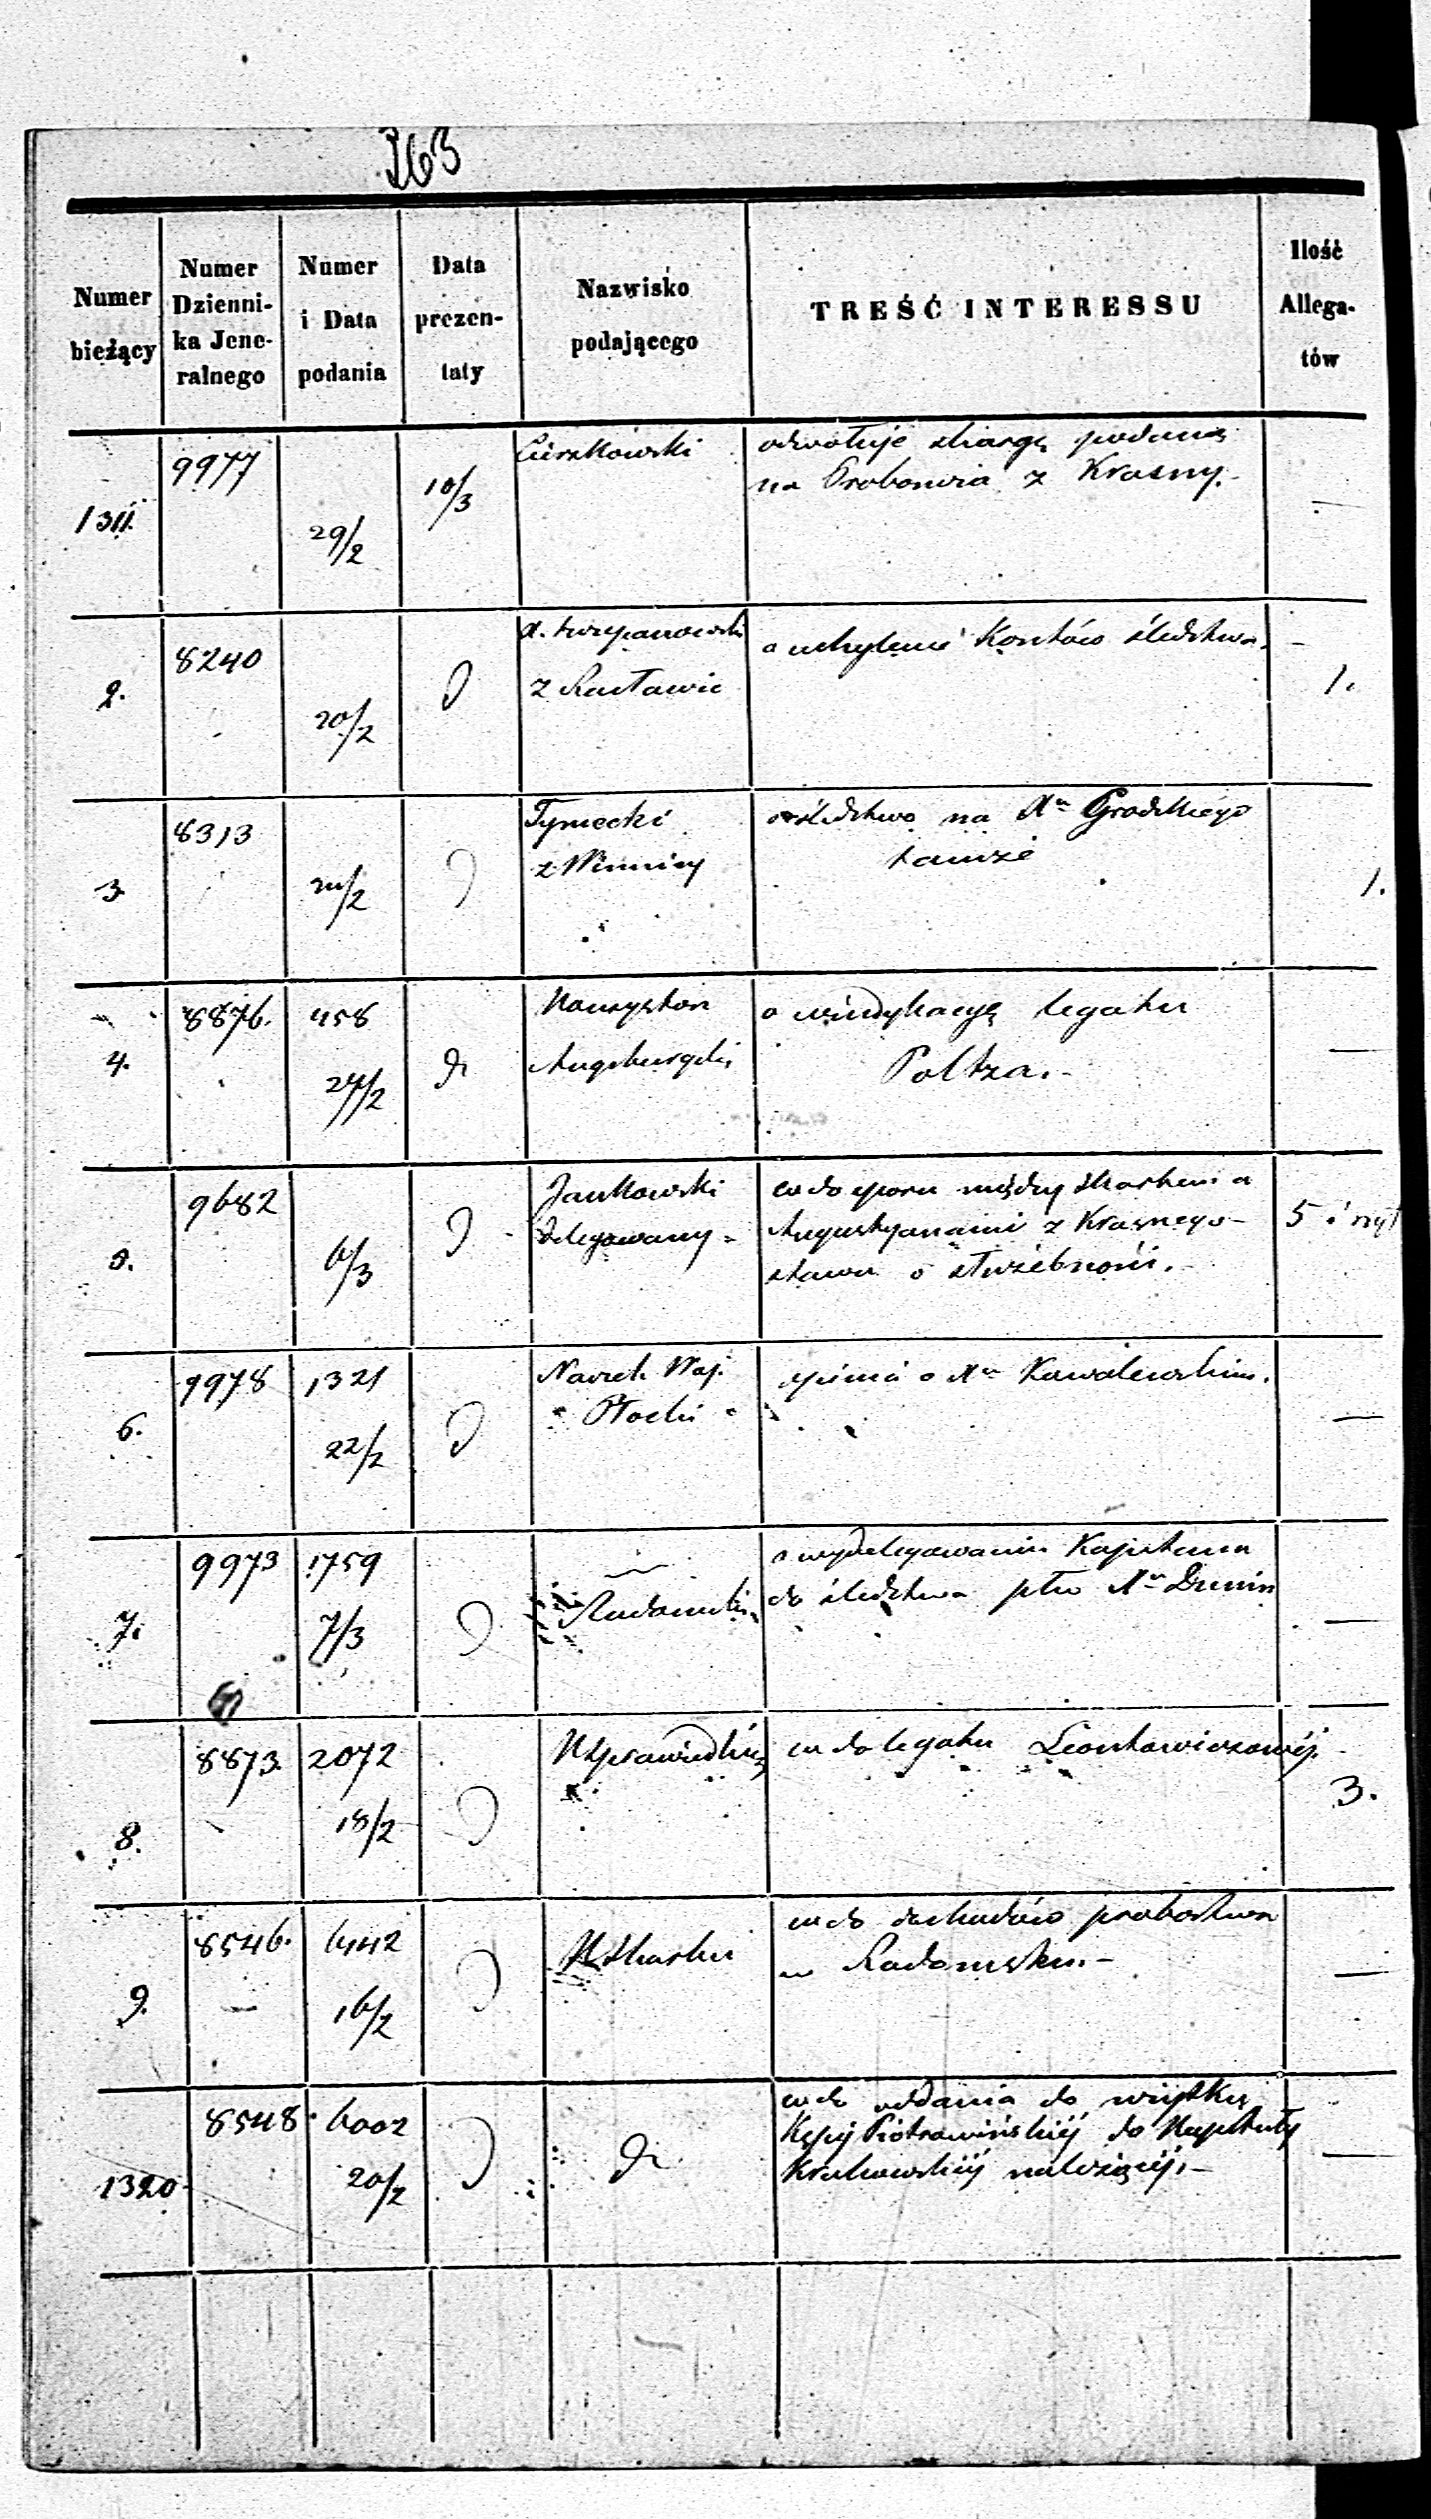 263
Numer bieżący
Numer Dzienni-
ka Jene-
ralnego
Numer
i Data
podania
Data
prezen-
taty
Nazwisko
podającego
TREŚĆ INTERESSU
Ilość
Allega-
tów
1311. 9977 29/2 10/3 odwołuje skargę podaną
na Probowcza z Krasny. —
2. 8240 20/2 z Racławic o uchylenie Kosztów śledztwa. 1.
3 8313 20/2 Tyniecki
z Winnicy
o śledztwo na Xa Grodzkiego
tamże
1.
4. 8876. 458
24/2 dt
Augsburgski
o windykacyę legatu
Poltza. —
5. 9682 6/3 Jankowski
Delegowany
co do sporu między Skarbem a
Augustyanami z Krasnego-
stawu o służebności. —
5 i
6. 9978 1321
22/2 Naczel. Woj.
Płocki
opinia o Xu Kowalewskim. —
7. 9973 1759
7/3 Radomski
o wydelegowanie Kapitana
do śledztwa ptko Xu Dunin —
8. 8873. 2072
18/2 K Sprawiedliw.
co do legatu Leontowiczowéj. 3.
9. 8546. 6442
16/2 K Skarbu
co do dochodów probostwa
w Radomsku. —
1320 8548 6002
20/2 dt
co do oddania do
Kępy Piotrowińskiéj do Kapituły
Krakowskiéj należącéj. —